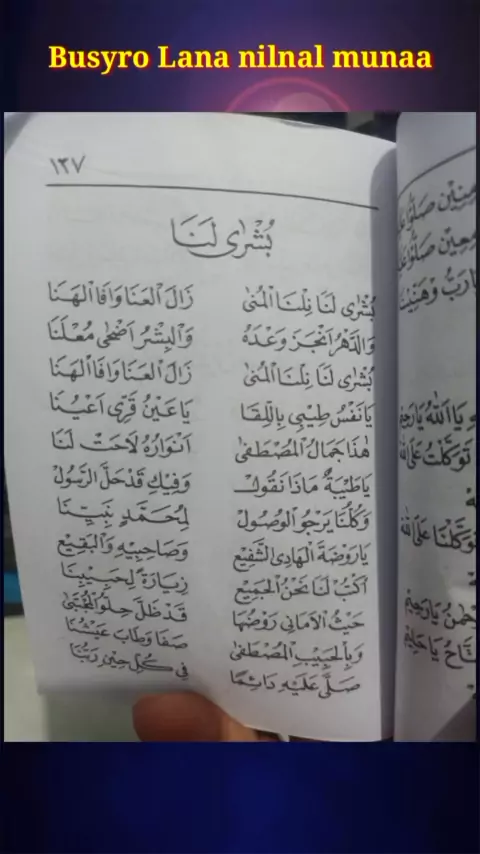 Busyro Lana nilnal munaa
١٢٧
بُشْرٰى لَنَا
بُشْرٰى لَنَا نِلْنَا الْمُنٰى زَالَ الْعَنَا وَافَا الْهَنَا
وَالدَّهْرُ اَنْجَزَ وَعْدَهُ وَالْبِشْرُ اَضْحٰى مُعْلَنَا
بُشْرٰى لَنَا نِلْنَا الْمُنٰى زَالَ الْعَنَا وَافَا الْهَنَا
يَانَفْسُ طِيْبِى بِاللِّقَا يَاعَيْنُ قَرِّى اَعْيُنَا
هٰذَا جَمَالُ الْمُصْطَفٰى اَنْوَارُهُ لَاحَتْ لَنَا
يَاطَيْبَةٌ مَاذَا نَقُوْلْ وَفِيْكِ قَدْ حَلَّ الرَّسُوْلْ
وَكُلُّنَا يَرْجُو الْوُصُوْلْ لِمُحَمَّدٍ نَبِيِّنَا
يَارَوْضَةَ الْهَادِى الشَّفِيْعْ وَصَاحِبَيْهِ وَالْبَقِيْعْ
اُكْتُبْ لَنَا نَحْنُ الْجَمِيْعْ زِيَارَةً لِحَبِيْبِنَا
حَيْثُ الْاَمَانِى رَوْضُهَا قَدْ ظَلَّ حُلْوَ الْمُجْتَنٰى
وَبِالْحَبِيْبِ الْمُصْطَفٰى صَفَا وَطَابَ عَيْشُنَا
صَلَّى عَلَيْهِ دَائِمًا فِى كُلِّ حِيْنٍ رَبُّنَا